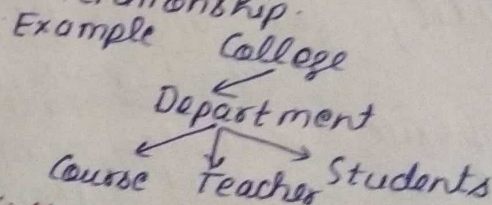 Example College
Department
Course Teacher Students